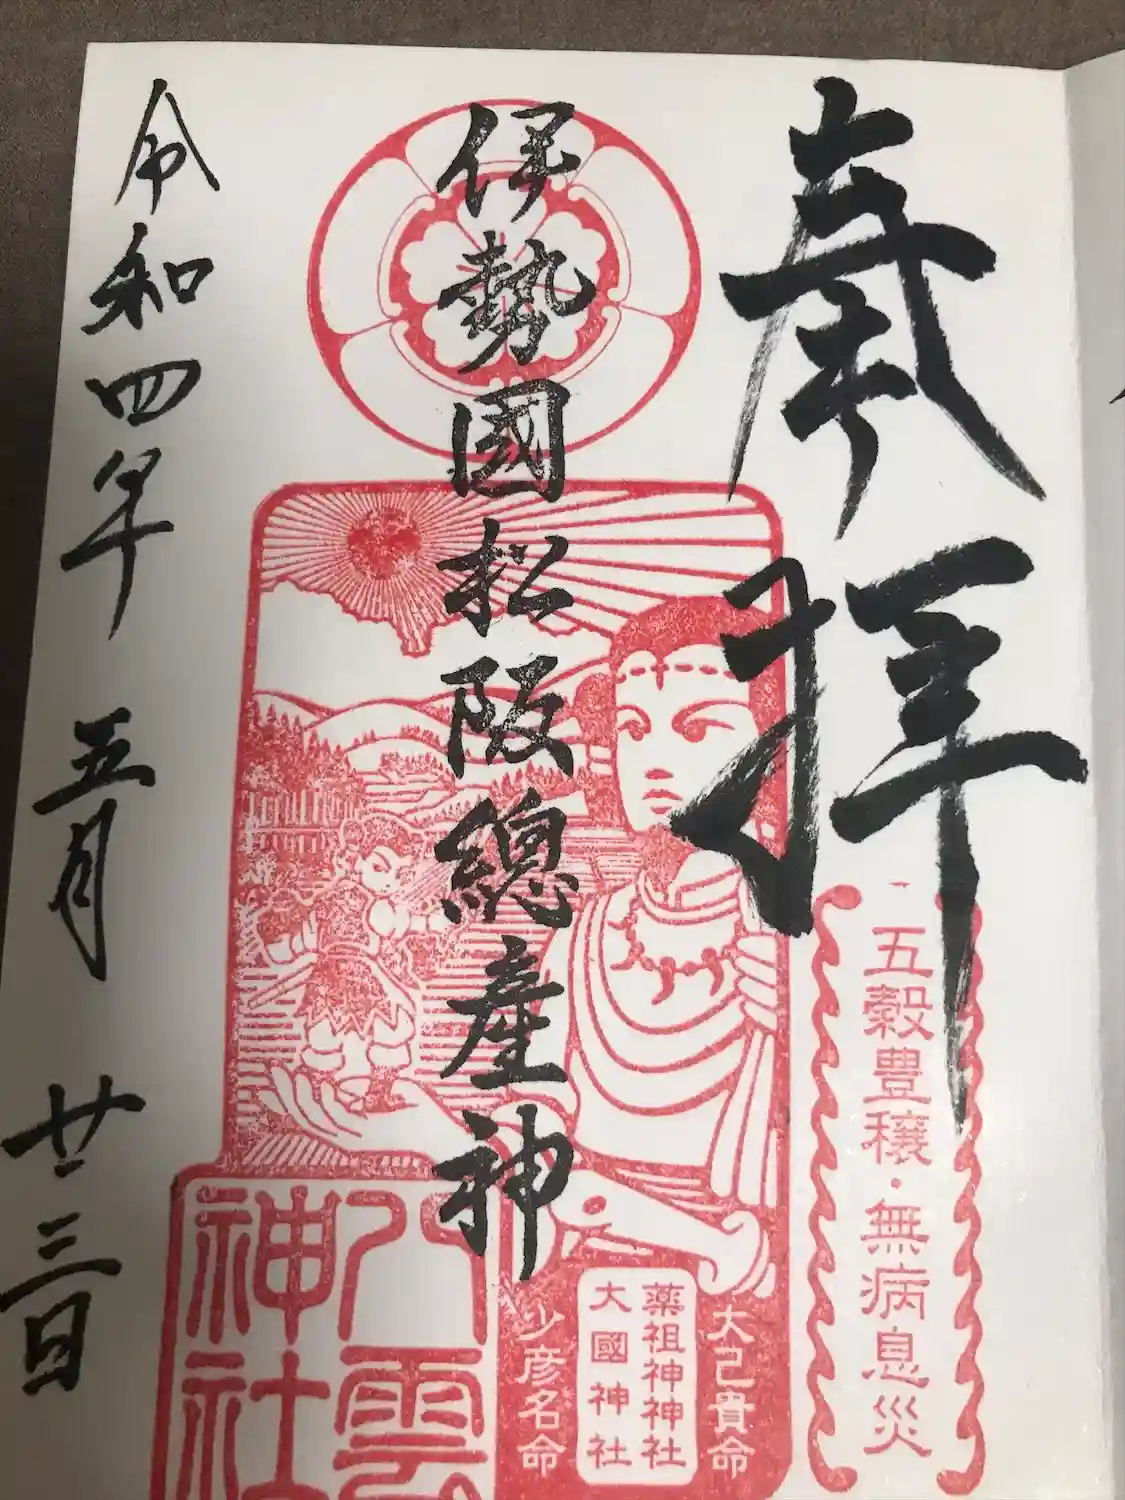 奉拝
五穀豊穣・無病息災
伊勢國松阪總産神
大己貴命
薬祖神神社
大國神社
少彦名命
八雲
神社
令和四年 五月 廿三日